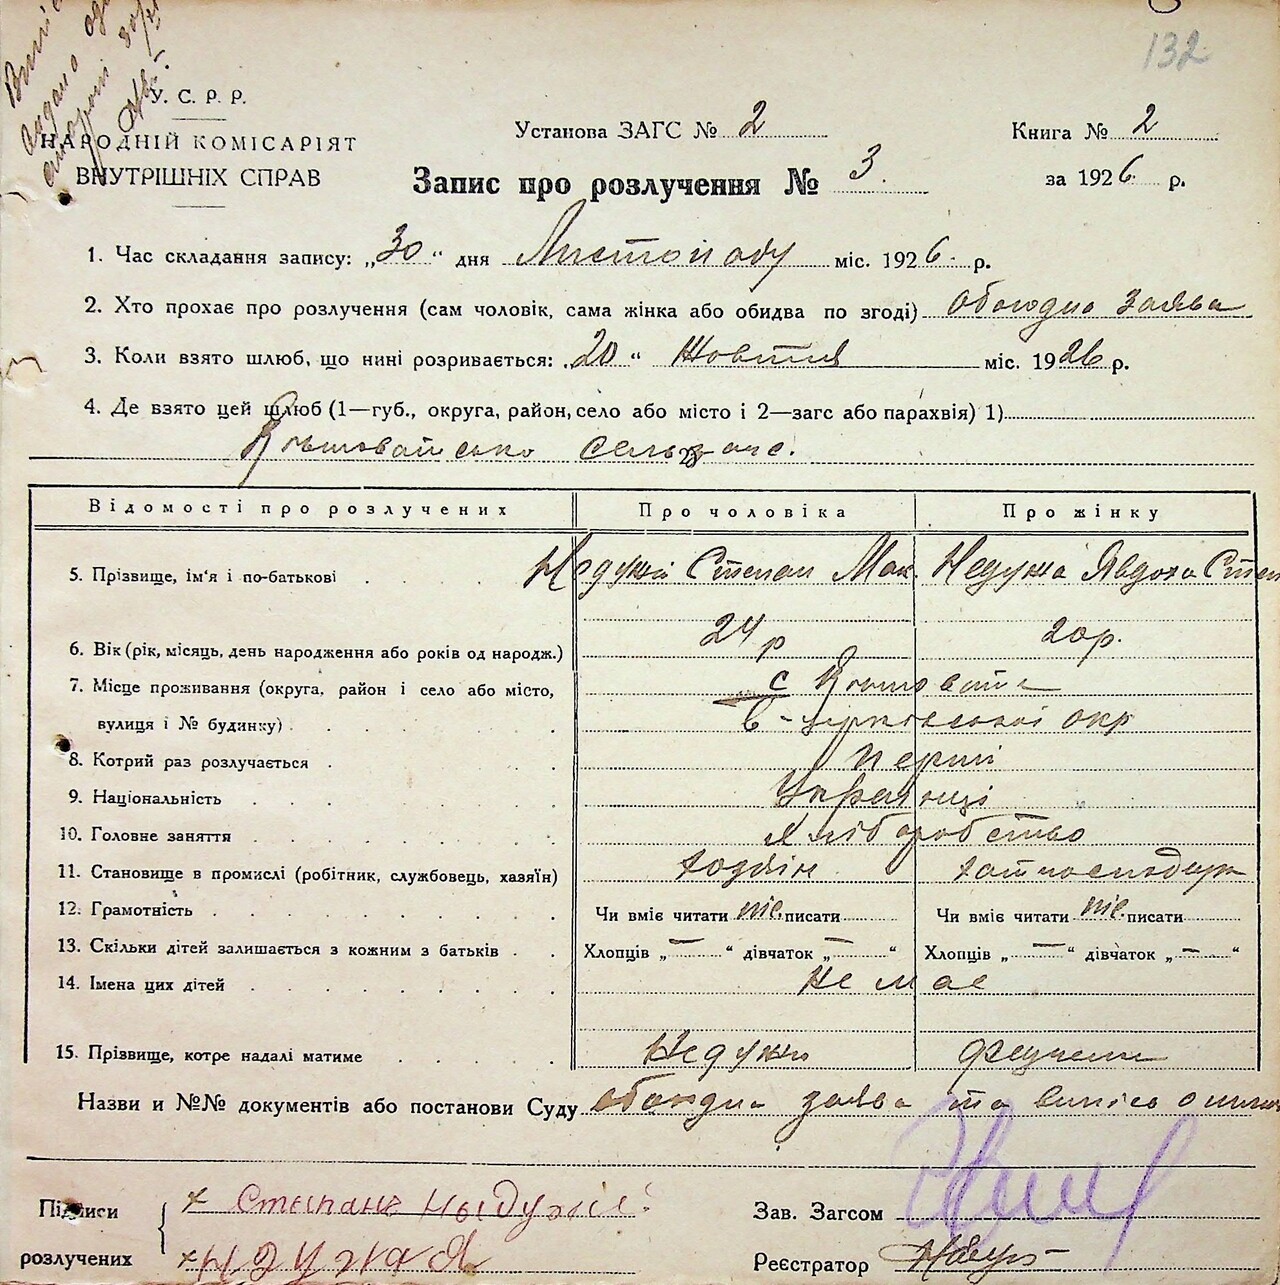 132
У. С. Р. Р.
НАРОДНІЙ КОМІСАРІЯТ
ВНУТРІШНІХ СПРАВ
Установа ЗАГС № 2
Книга № 2
Запис про розлучення № 3.
за 1926 р.
1. Час складання запису: „30“ дня Листопаду міс. 1926. р.
2. Хто прохає про розлучення (сам чоловік, сама жінка або обидва по згоді) обоюдна заява
3. Коли взято шлюб, що нині розривається: „20“ Жовтня міс. 1926 р.
4. Де взято цей шлюб (1—губ., округа, район, село або місто і 2—загс або парахвія) 1)
Відомості про розлучених
Про чоловіка
Про жінку
5. Прізвище, ім'я і по-батькові Недужій Степан Мак. Недужа Явдоха Степ
6. Вік (рік, місяць, день народження або років од народж.) 24 р 20 р.
7. Місце проживання (округа, район і село або місто, с
вулиця і № будинку) окр
8. Котрий раз розлучається перший
9. Національність Українці
10. Головне заняття Хліборобство
11. Становище в промислі (робітник, службовець, хазяїн) хозяін
12. Грамотність Чи вміє читати ніє. писати Чи вміє читати ніє. писати
13. Скільки дітей залишається з кожним з батьків Хлопців „—“ дівчаток „—“ Хлопців „—“ дівчаток „—“
14. Імена цих дітей не має
15. Прізвище, котре надалі матиме Недужи
Назви и №№ документів або постанови Суду обоюдна заява та
Підписи
розлучених
× Степанъ Ныдужій
Зав. Загсом
Реєстратор